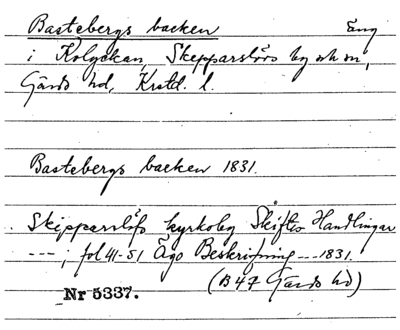 Bastebergs backen Äng
i Kolyckan, Skepparslövs by och sn,
Gärds hd, Krstd. l.
Bastebergs backen 1831.
Skepparslöfs kyrkoby Skiftes Handlingar
---, fol 41-51 Ägo Beskrifning --- 1831.
(B 47 Gärds hd)
Nr 5337.